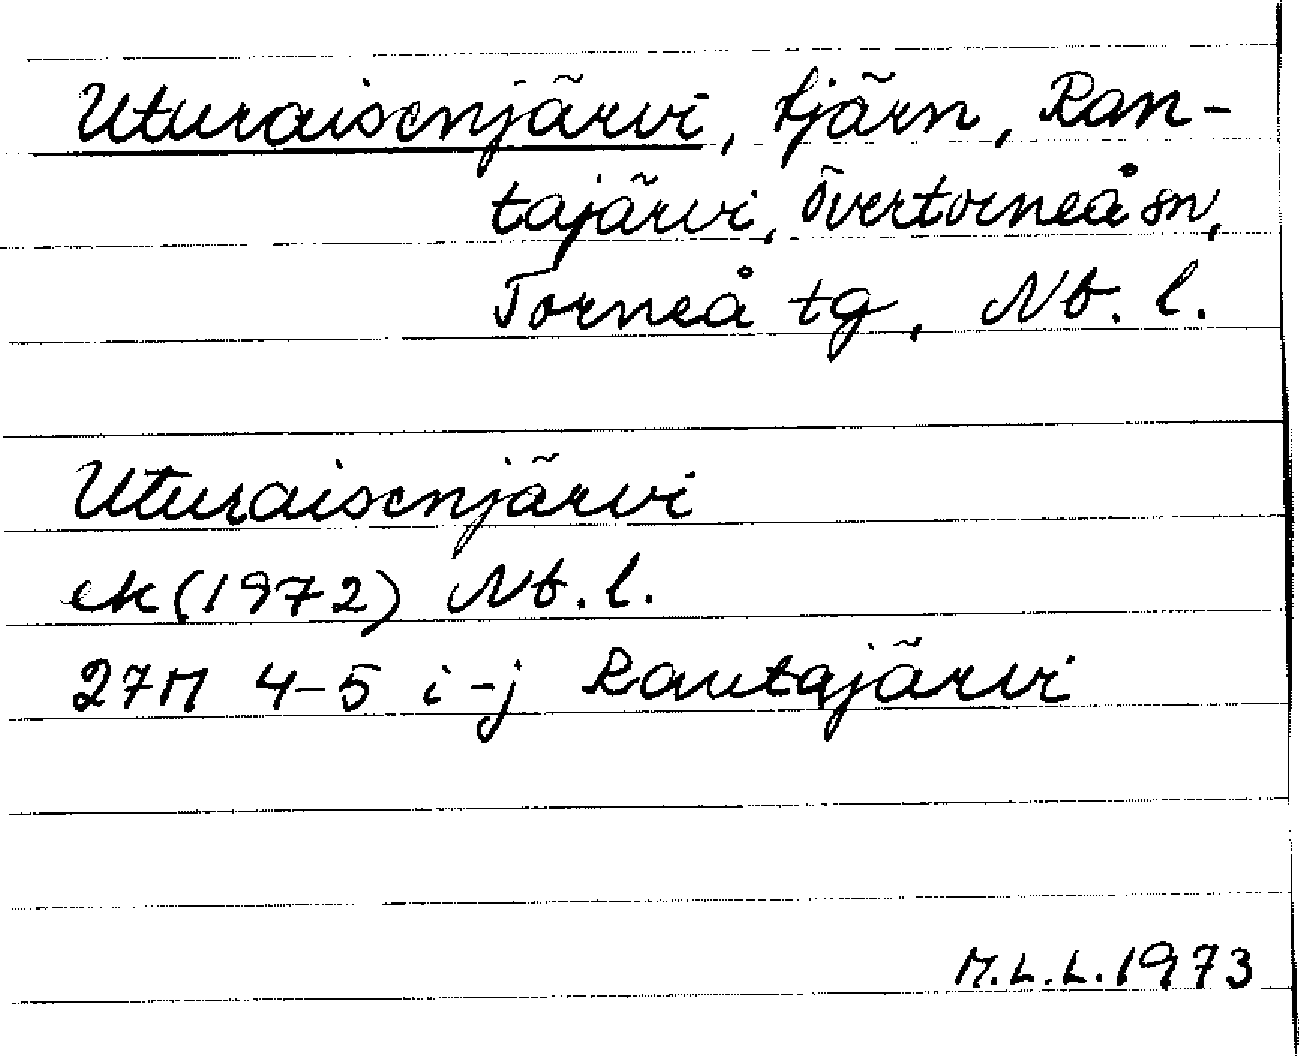 Uturaisenjärvi, tjärn, Ran-
tajärvi, Övertorneå sn,
Torneå tg, Nb. l.
Uturaisenjärvi
ek (1972) Nb. l.
27M 4-5 i-j Rantajärvi
M.L.L. 1973